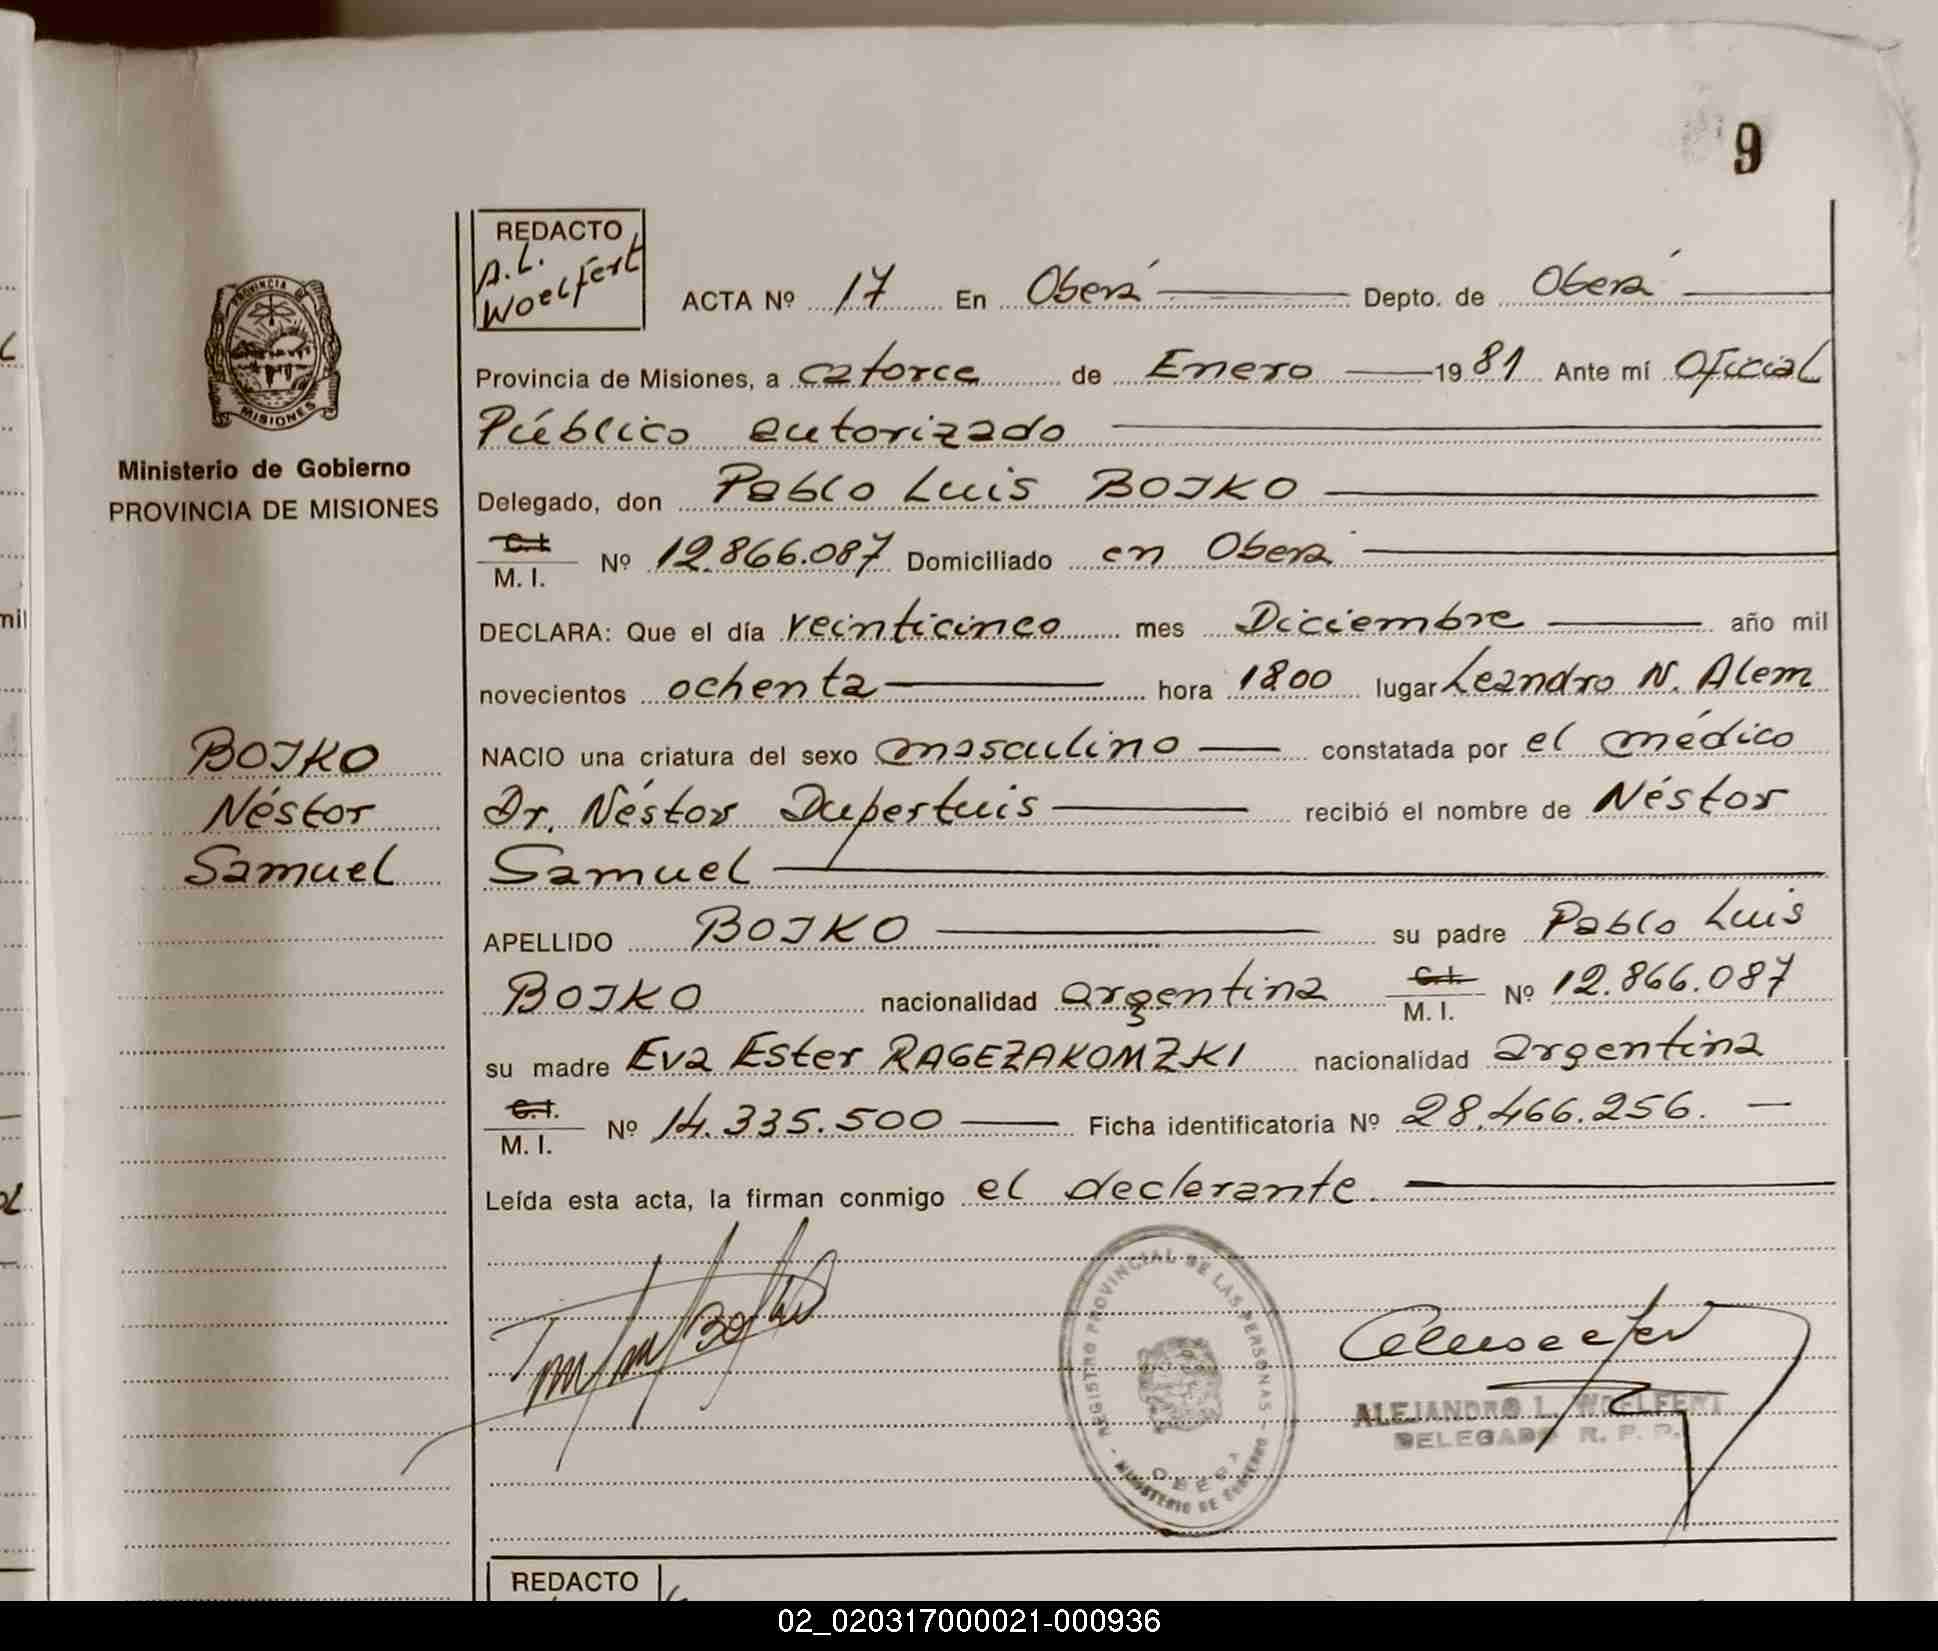 9
REDACTO
A.L.
Woelfert
ACTA Nº 17 En Oberá Depto. de Oberá
Provincia de Misiones, a catorce de Enero 1981 Ante mí Oficial
Público autorizado
Delegado, don Pablo Luis BOJKO
C.I.
M. I. Nº 12.866.087 Domiciliado en Oberá
DECLARA: Que el día veinticinco mes Diciembre año mil
novecientos ochenta hora 1800 lugar Leandro N. Alem
NACIO una criatura del sexo masculino constatada por el médico
Dr. Néstor Dupertuis recibió el nombre de Néstor
Samuel
APELLIDO BOJKO su padre Pablo Luis
BOJKO nacionalidad argentina C.I. M. I. Nº 12.866.087
su madre Eva Ester RAGEZAKOMZKI nacionalidad argentina
C.I.
M. I. Nº 14.335.500 Ficha identificatoria Nº 28.466.256.
Leída esta acta, la firman conmigo el declarante.
PROVINCIA DE
MISIONES
Ministerio de Gobierno
PROVINCIA DE MISIONES
BOJKO
Néstor
Samuel
REGISTRO PROVINCIAL DE LAS PERSONAS
OBERA
MINISTERIO DE GOBIERNO
ALEJANDRO L. WOELFERT
DELEGADO R. P. P.
REDACTO
mil
02_020317000021-000936